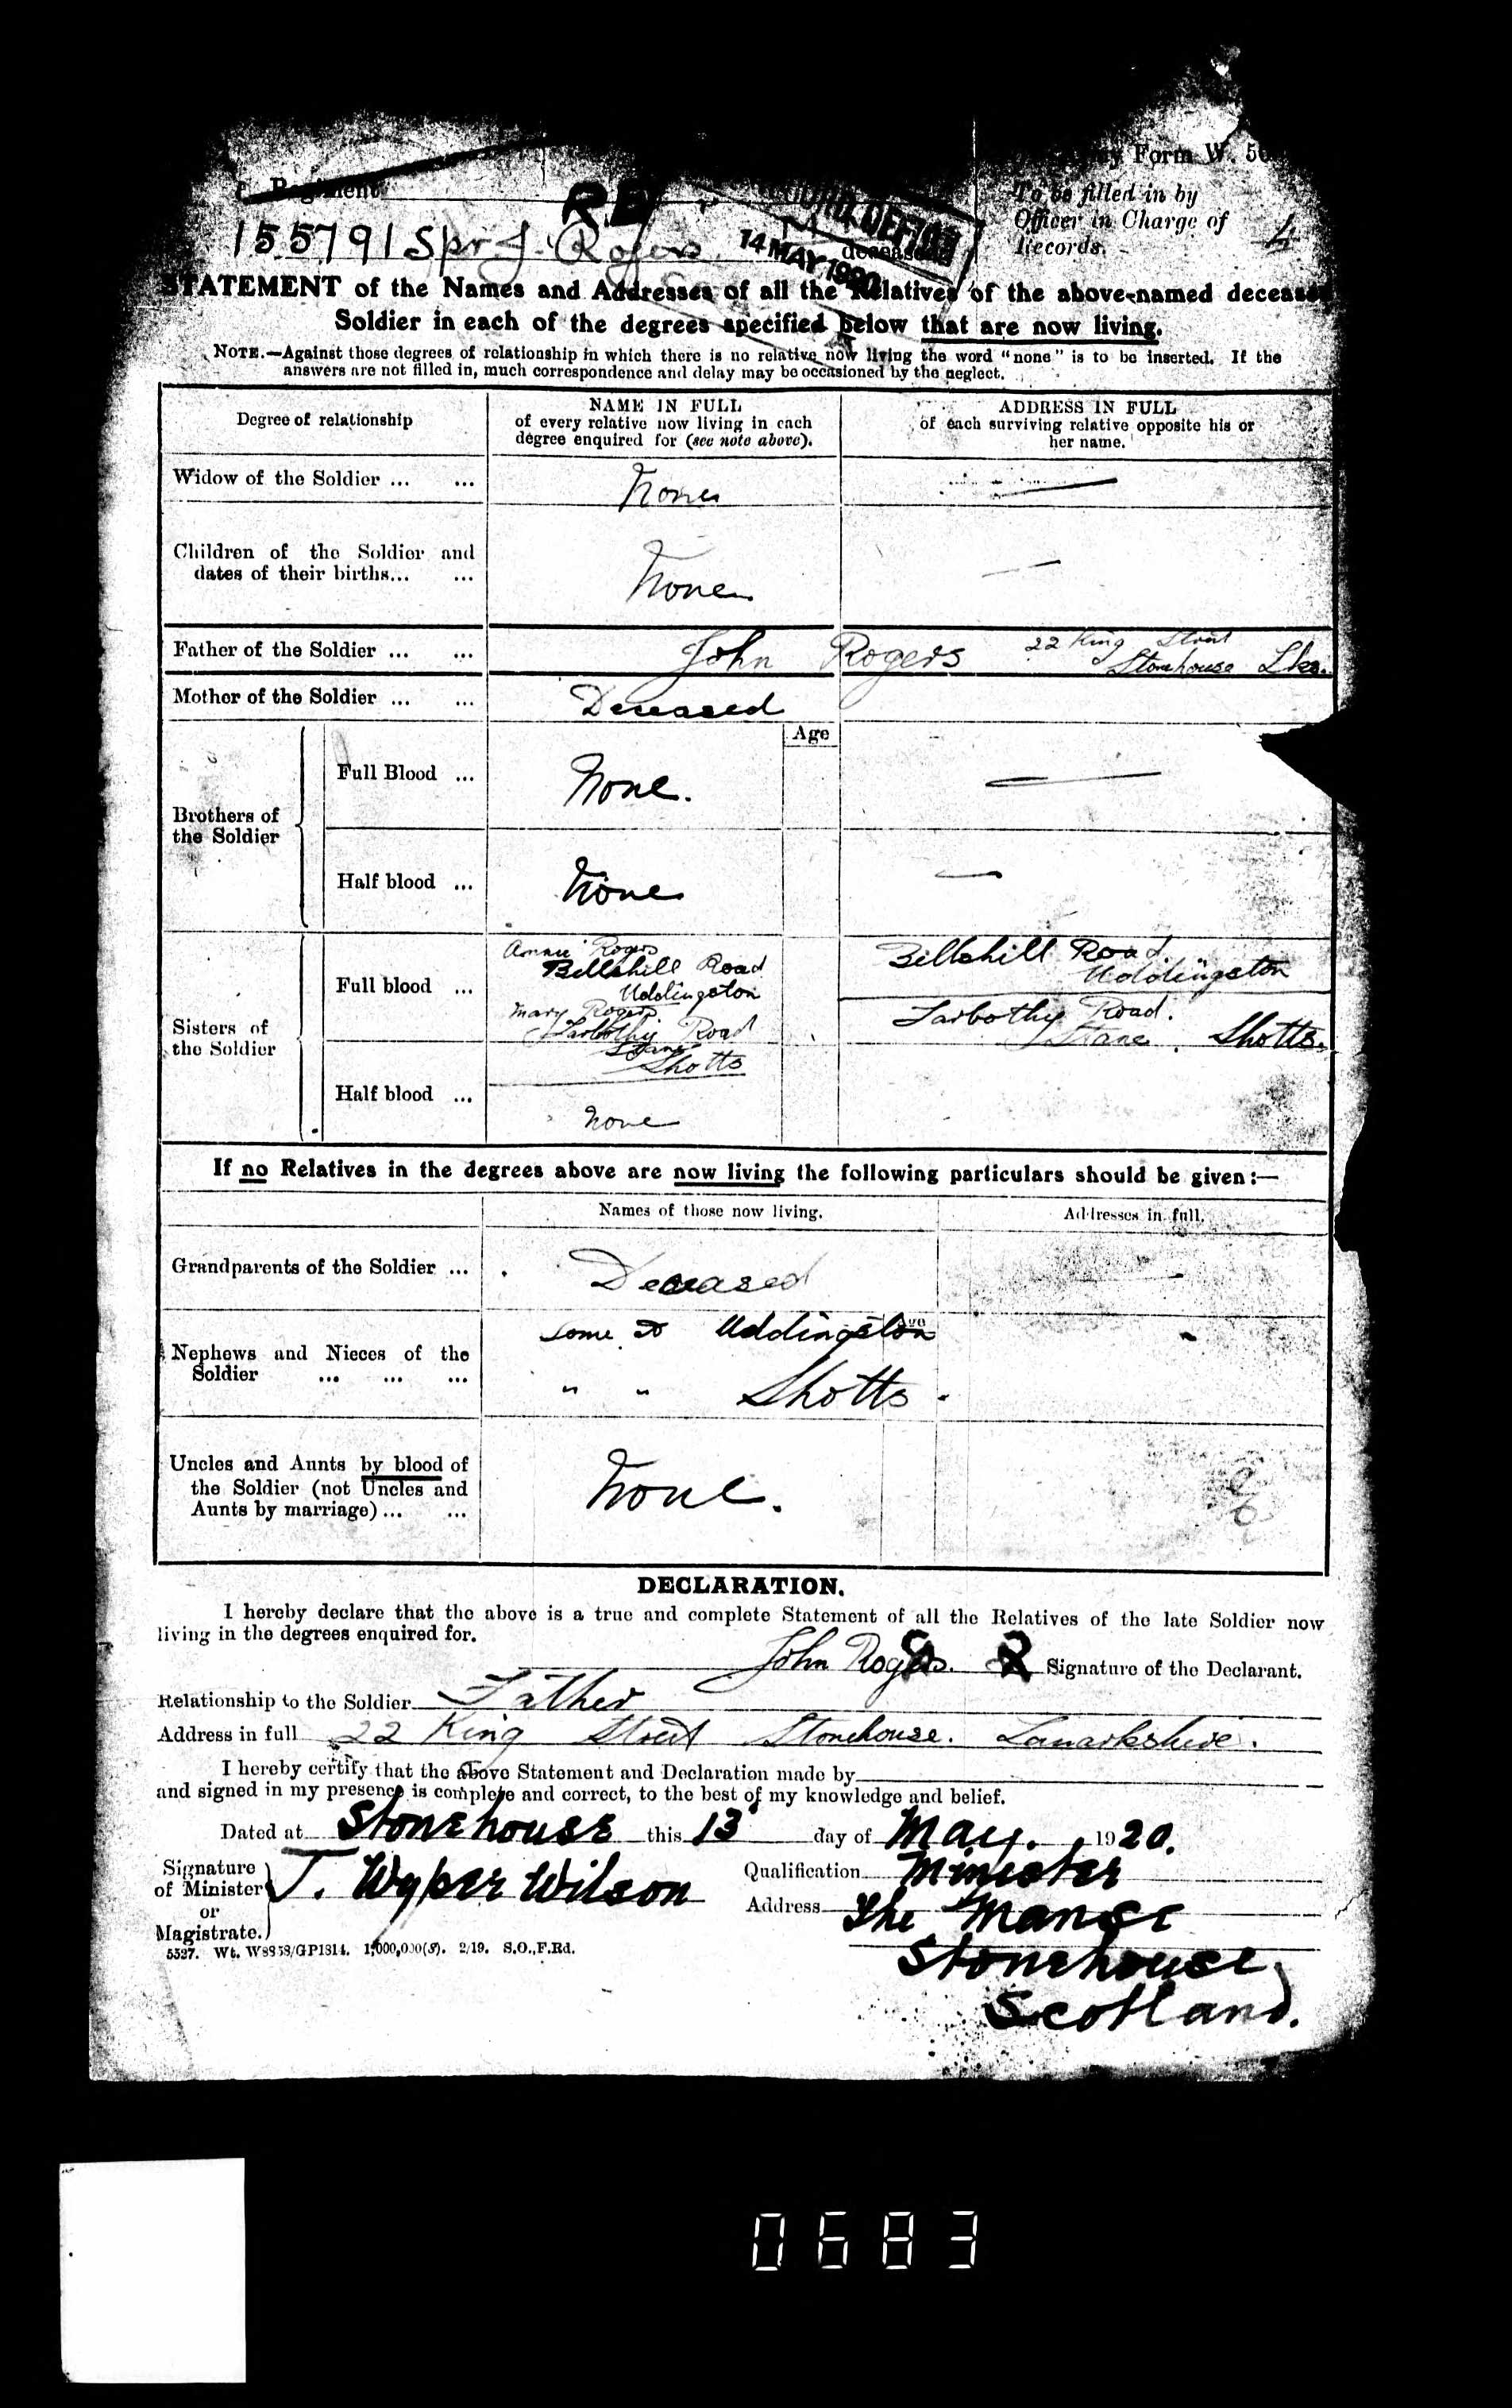 Form W.
To be filled in by
Officer in Charge of
Records.
4
Regiment
155791 Spr J. Rogers
14 MAY 1920
deceased
STATEMENT of the Names and Addresses of all the Relatives of the above-named deceased
Soldier in each of the degrees specified below that are now living.
NOTE.—Against those degrees of relationship in which there is no relative now living the word "none" is to be inserted. If the
answers are not filled in, much correspondence and delay may be occasioned by the neglect.
Degree of relationship
NAME IN FULL
of every relative now living in each
degree enquired for (see note above).
ADDRESS IN FULL
of each surviving relative opposite his or
her name.
Widow of the Soldier ... ...
None
Children of the Soldier and
dates of their births... ...
None
Father of the Soldier ... ...
John Rogers
22 King Street
Stonehouse Lks.
Mother of the Soldier ... ...
Deceased
Age
Brothers of
the Soldier
Full Blood ...
None.
Half blood ...
None
Sisters of
the Soldier
Full blood ...
Annie Rogers
Bellshill Road
Uddingston
Mary Rogers
Road
Stane
Shotts
Bellshill Road.
Uddingston
Road.
Stane. Shotts.
Half blood ...
None
If no Relatives in the degrees above are now living the following particulars should be given:—
Names of those now living.
Addresses in full.
Grandparents of the Soldier ...
Deceased
Nephews and Nieces of the
Soldier ... ... ...
Age
Some at Uddingston
" " Shotts.
Uncles and Aunts by blood of
the Soldier (not Uncles and
Aunts by marriage)... ...
None.
DECLARATION.
I hereby declare that the above is a true and complete Statement of all the Relatives of the late Soldier now
living in the degrees enquired for.
John Rogers. Signature of the Declarant.
Relationship to the Soldier Father
Address in full 22 King Street Stonehouse. Lanarkshire.
I hereby certify that the above Statement and Declaration made by
and signed in my presence is complete and correct, to the best of my knowledge and belief.
Dated at Stonehouse this 13 day of May. 1920.
Signature
of Minister
or
Magistrate.
J. Wyper Wilson
Qualification Minister
Address The Manse
Stonehouse
Scotland.
5527. Wt. W8958/GP1314. 1,000,000(S). 2/19. S.O.,F.Rd.
0683